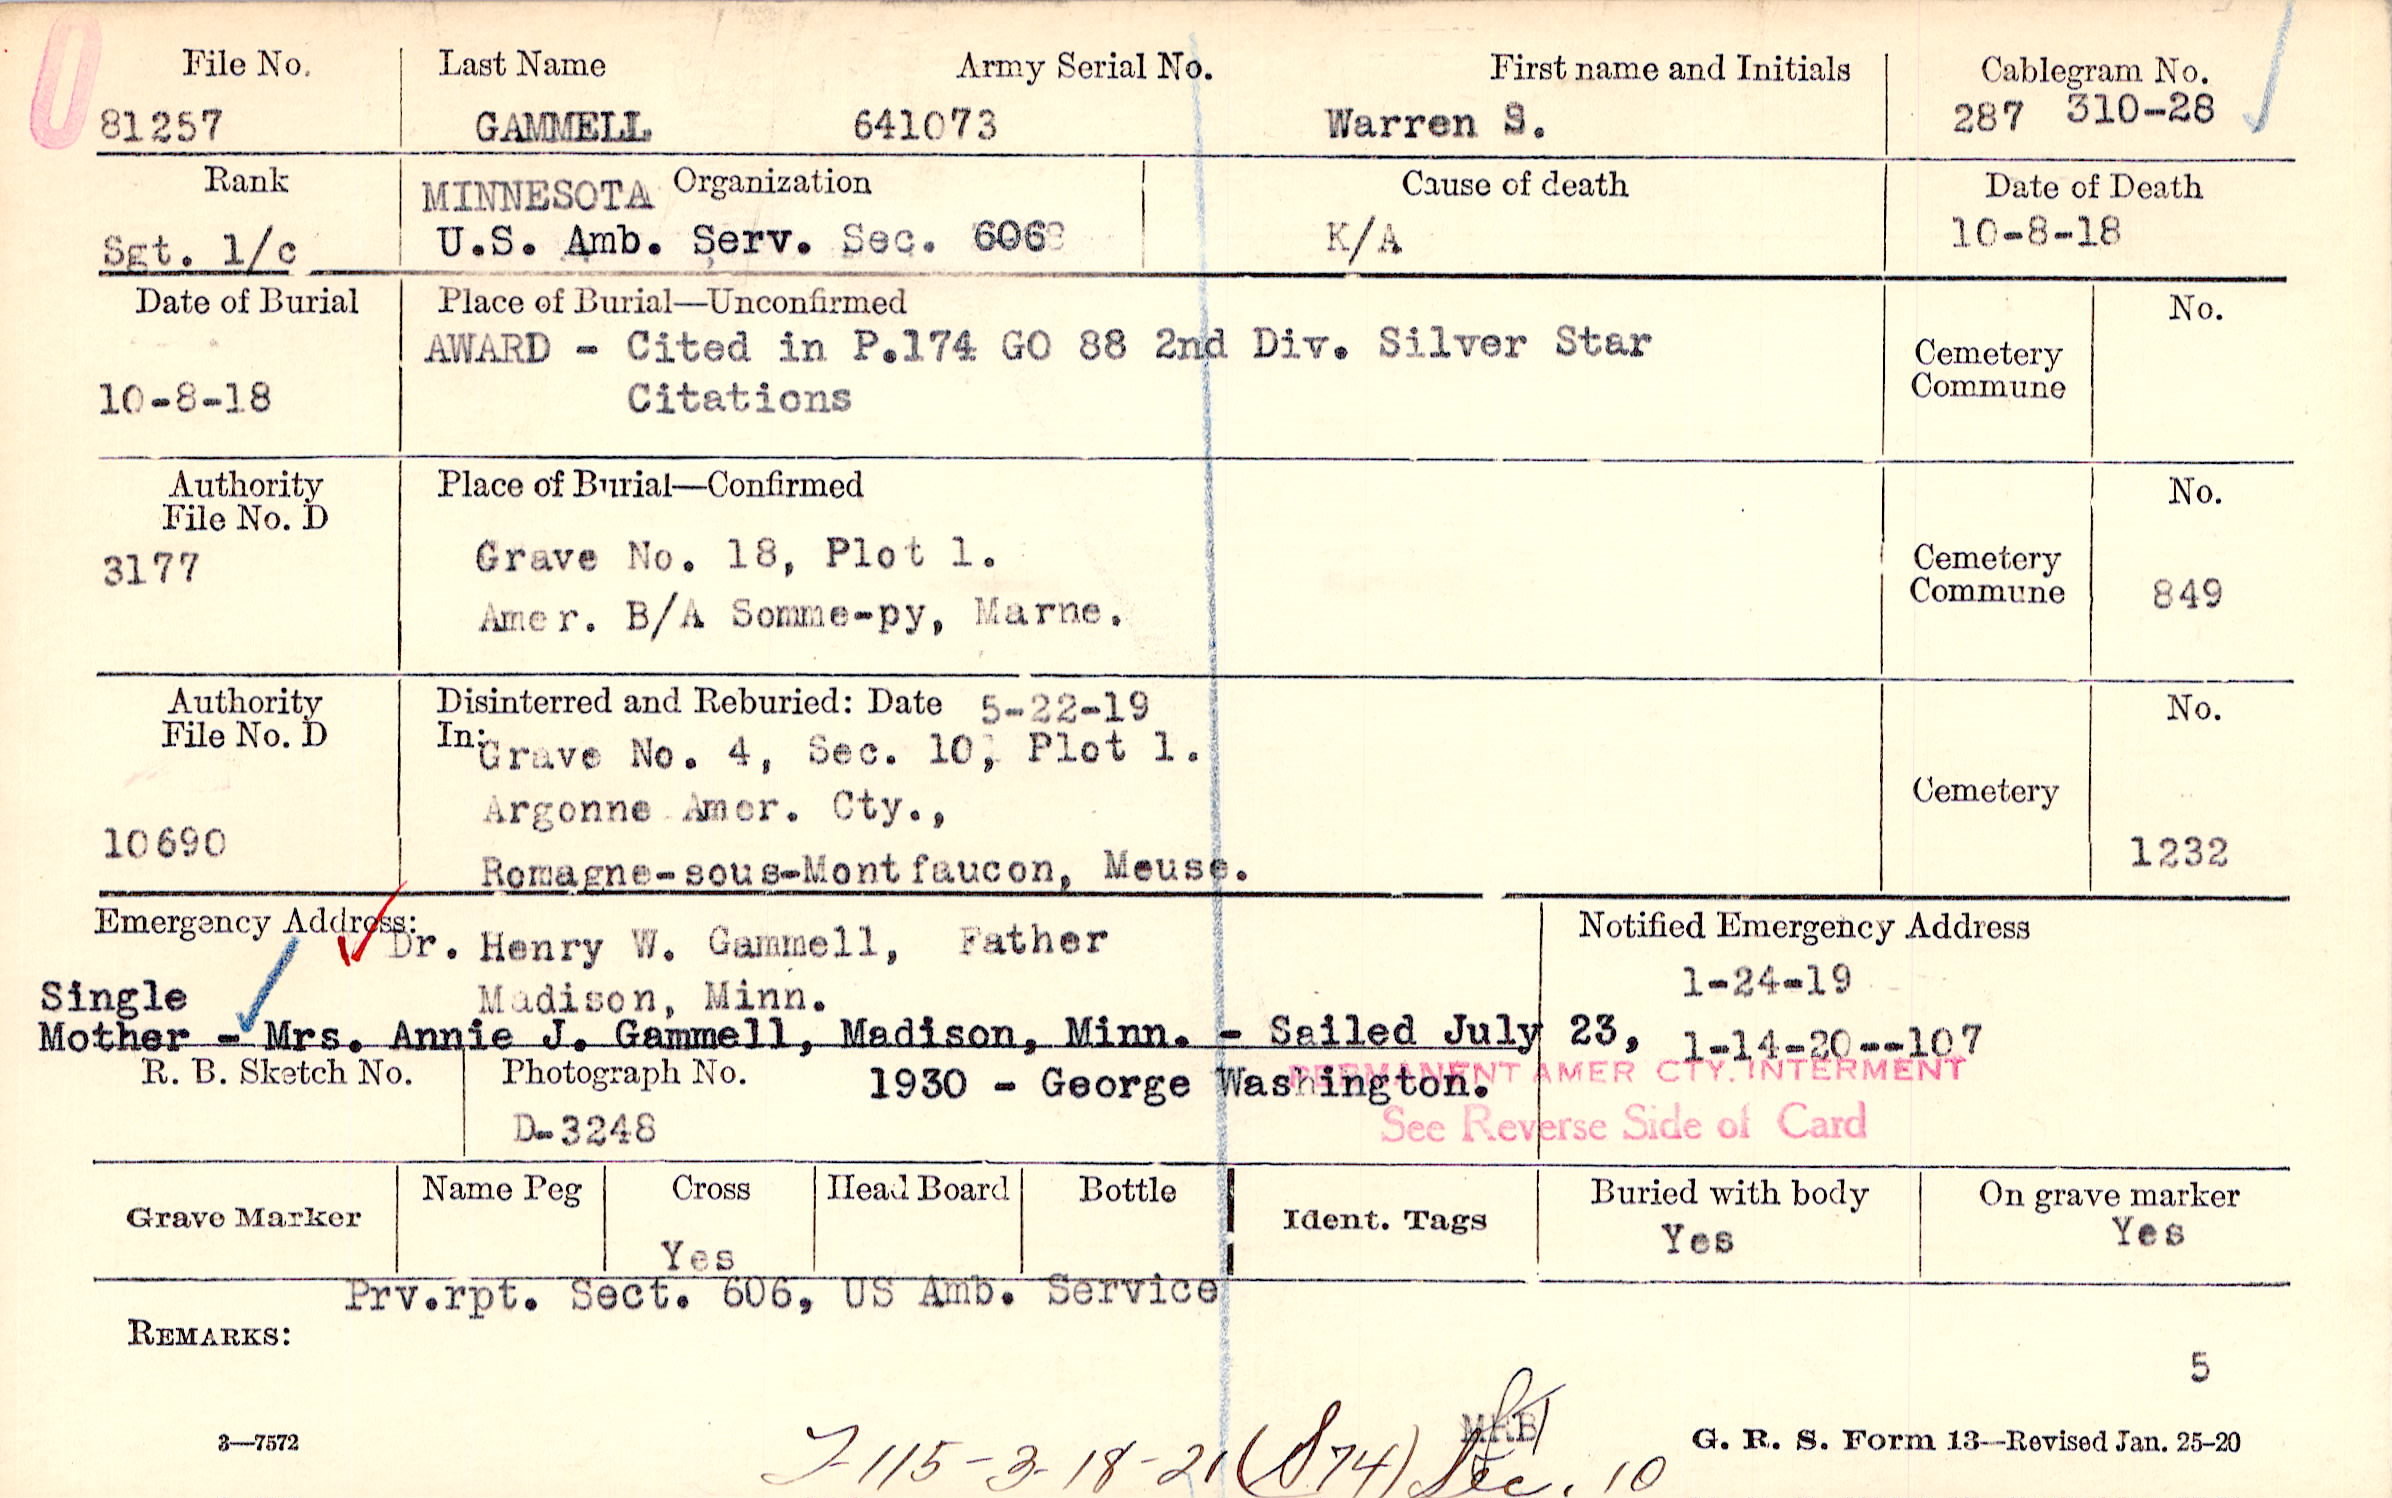 File No. Last Name Army Serial No. First name and Initials Cablegram No.
81257 GAMMELL 641073 Warren S. 287 310-28
Rank MINNESOTA Organization Cause of death Date of Death
Sgt. 1/c U.S. Amb. Serv. Sec. 606 K/A 10-8-18
Date of Burial Place of Burial—Unconfirmed No.
AWARD - Cited in P.174 GO 88 2nd Div. Silver Star
Cemetery
Commune
10-8-18 Citations
Authority Place of Burial—Confirmed No.
File No. D
3177 Grave No. 18, Plot 1.
Cemetery
Commune 849
Amer. B/A Somme-py, Marne.
Authority Disinterred and Reburied: Date 5-22-19 No.
File No. D In: Grave No. 4, Sec. 10, Plot 1.
Argonne Amer. Cty., Cemetery
10690 Romagne-sous-Montfaucon, Meuse. 1232
Emergency Address: Dr. Henry W. Gammell, Father Notified Emergency Address
Single Madison, Minn. 1-24-19
Mother - Mrs. Annie J. Gammell, Madison, Minn. - Sailed July 23, 1-14-20--107
R. B. Sketch No. Photograph No. 1930 - George Washington.
PERMANENT AMER CTY. INTERMENT
D-3248 See Reverse Side of Card
Grave Marker Name Peg Cross Head Board Bottle Ident. Tags Buried with body On grave marker
Yes Yes Yes
Prv.rpt. Sect. 606, US Amb. Service
REMARKS:
5
3—7572 MRB G. R. S. Form 13—Revised Jan. 25-20
115-3-18-21 (S74) Sec. 10